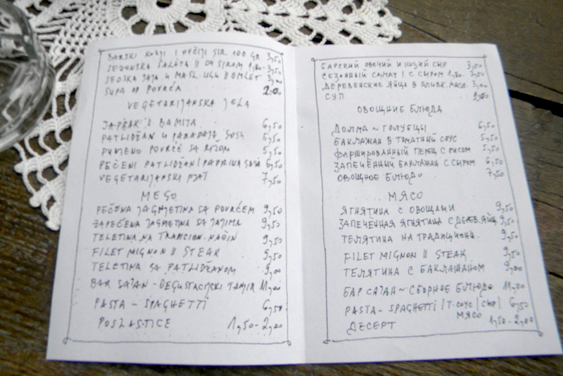 BARSKI KOZJI I OVČIJI SIR 100 GR. 3,50
SEZONSKA SALATA II SA SIROM 1,80- 3,50
SEOSKA JAJA U MASL. ULJU OMLET 3,50
SUPA OD POVRĆA 2,00
VEGETARIJANSKA JELA
JAPRAK II BAMIJA 6,50
PATLIDŽAN U PARADAJZ SOSU 5,50
PUNJENO POVRĆE SA RIZOM 5,50
PEČENI PATLIDŽAN I PAPRIKA SOSA 6,50
VEGETARIJANSKI PJAT 7,50
MESO
PEČENA JAGNJETINA SA POVRĆEM 9,50
ZAPEČENA JAGNJETINA SA JAJIMA 9,50
TELETINA NA TRADICION. NAČIN 9,50
FILET MIGNON II STEAK 9,50
TELETINA SA PATLIDŽANOM 9,00
BAR SAČAN - DEGUSTACIJSKI TANJIR 11,00
PASTA - SPAGHETTI 6,50
POSLASTICE 1,50-2,00
БАРСКИЙ ОВЕЧИЙ И КОЗИЙ СЫР 3,50
СЕЗОННЫЙ САЛАТ I С СЫРОМ 1,80- 3,50
ДЕРЕВЕНСКИЕ ЯЙЦА В ОЛИВК. МАСЛЕ 3,50
СУП 2,00
ОВОЩНИЕ БЛЮДА
ДОЛМА ~ ГОЛУБЦЫ 6,50
БАКЛАЖАН В ТОМАТНЫЙ СОУС 5,50
ФАРШИРОВАННЫЙ ПЕРЕЦ С РИСОМ 5,50
ЗАПЕЧЕННЫЙ БАКЛАЖАН С СЫРОМ 6,50
ОВОЩНОЕ БЛЮДО 7,50
МЯСО
ЯГНЯТИНА С ОВОЩАМИ 9,50
ЗАПЕЧЕННАЯ ЯГНЯТИНА С ЯЙЦ. 9,50
ТЕЛЯТИНА НА ТРАДИЦИОНА. 9,50
FILET MIGNON II STEAK 9,50
ТЕЛЯТИНА С БАКЛАЖАНОМ 9,00
БАР САЧАН ~ СБОРНОЕ БЛЮДО 11,00
PASTA- SPAGHETTI | Т-СОУС | СЫР | МЯСО 6,50
ДЕСЕРТ 1,50-2,00